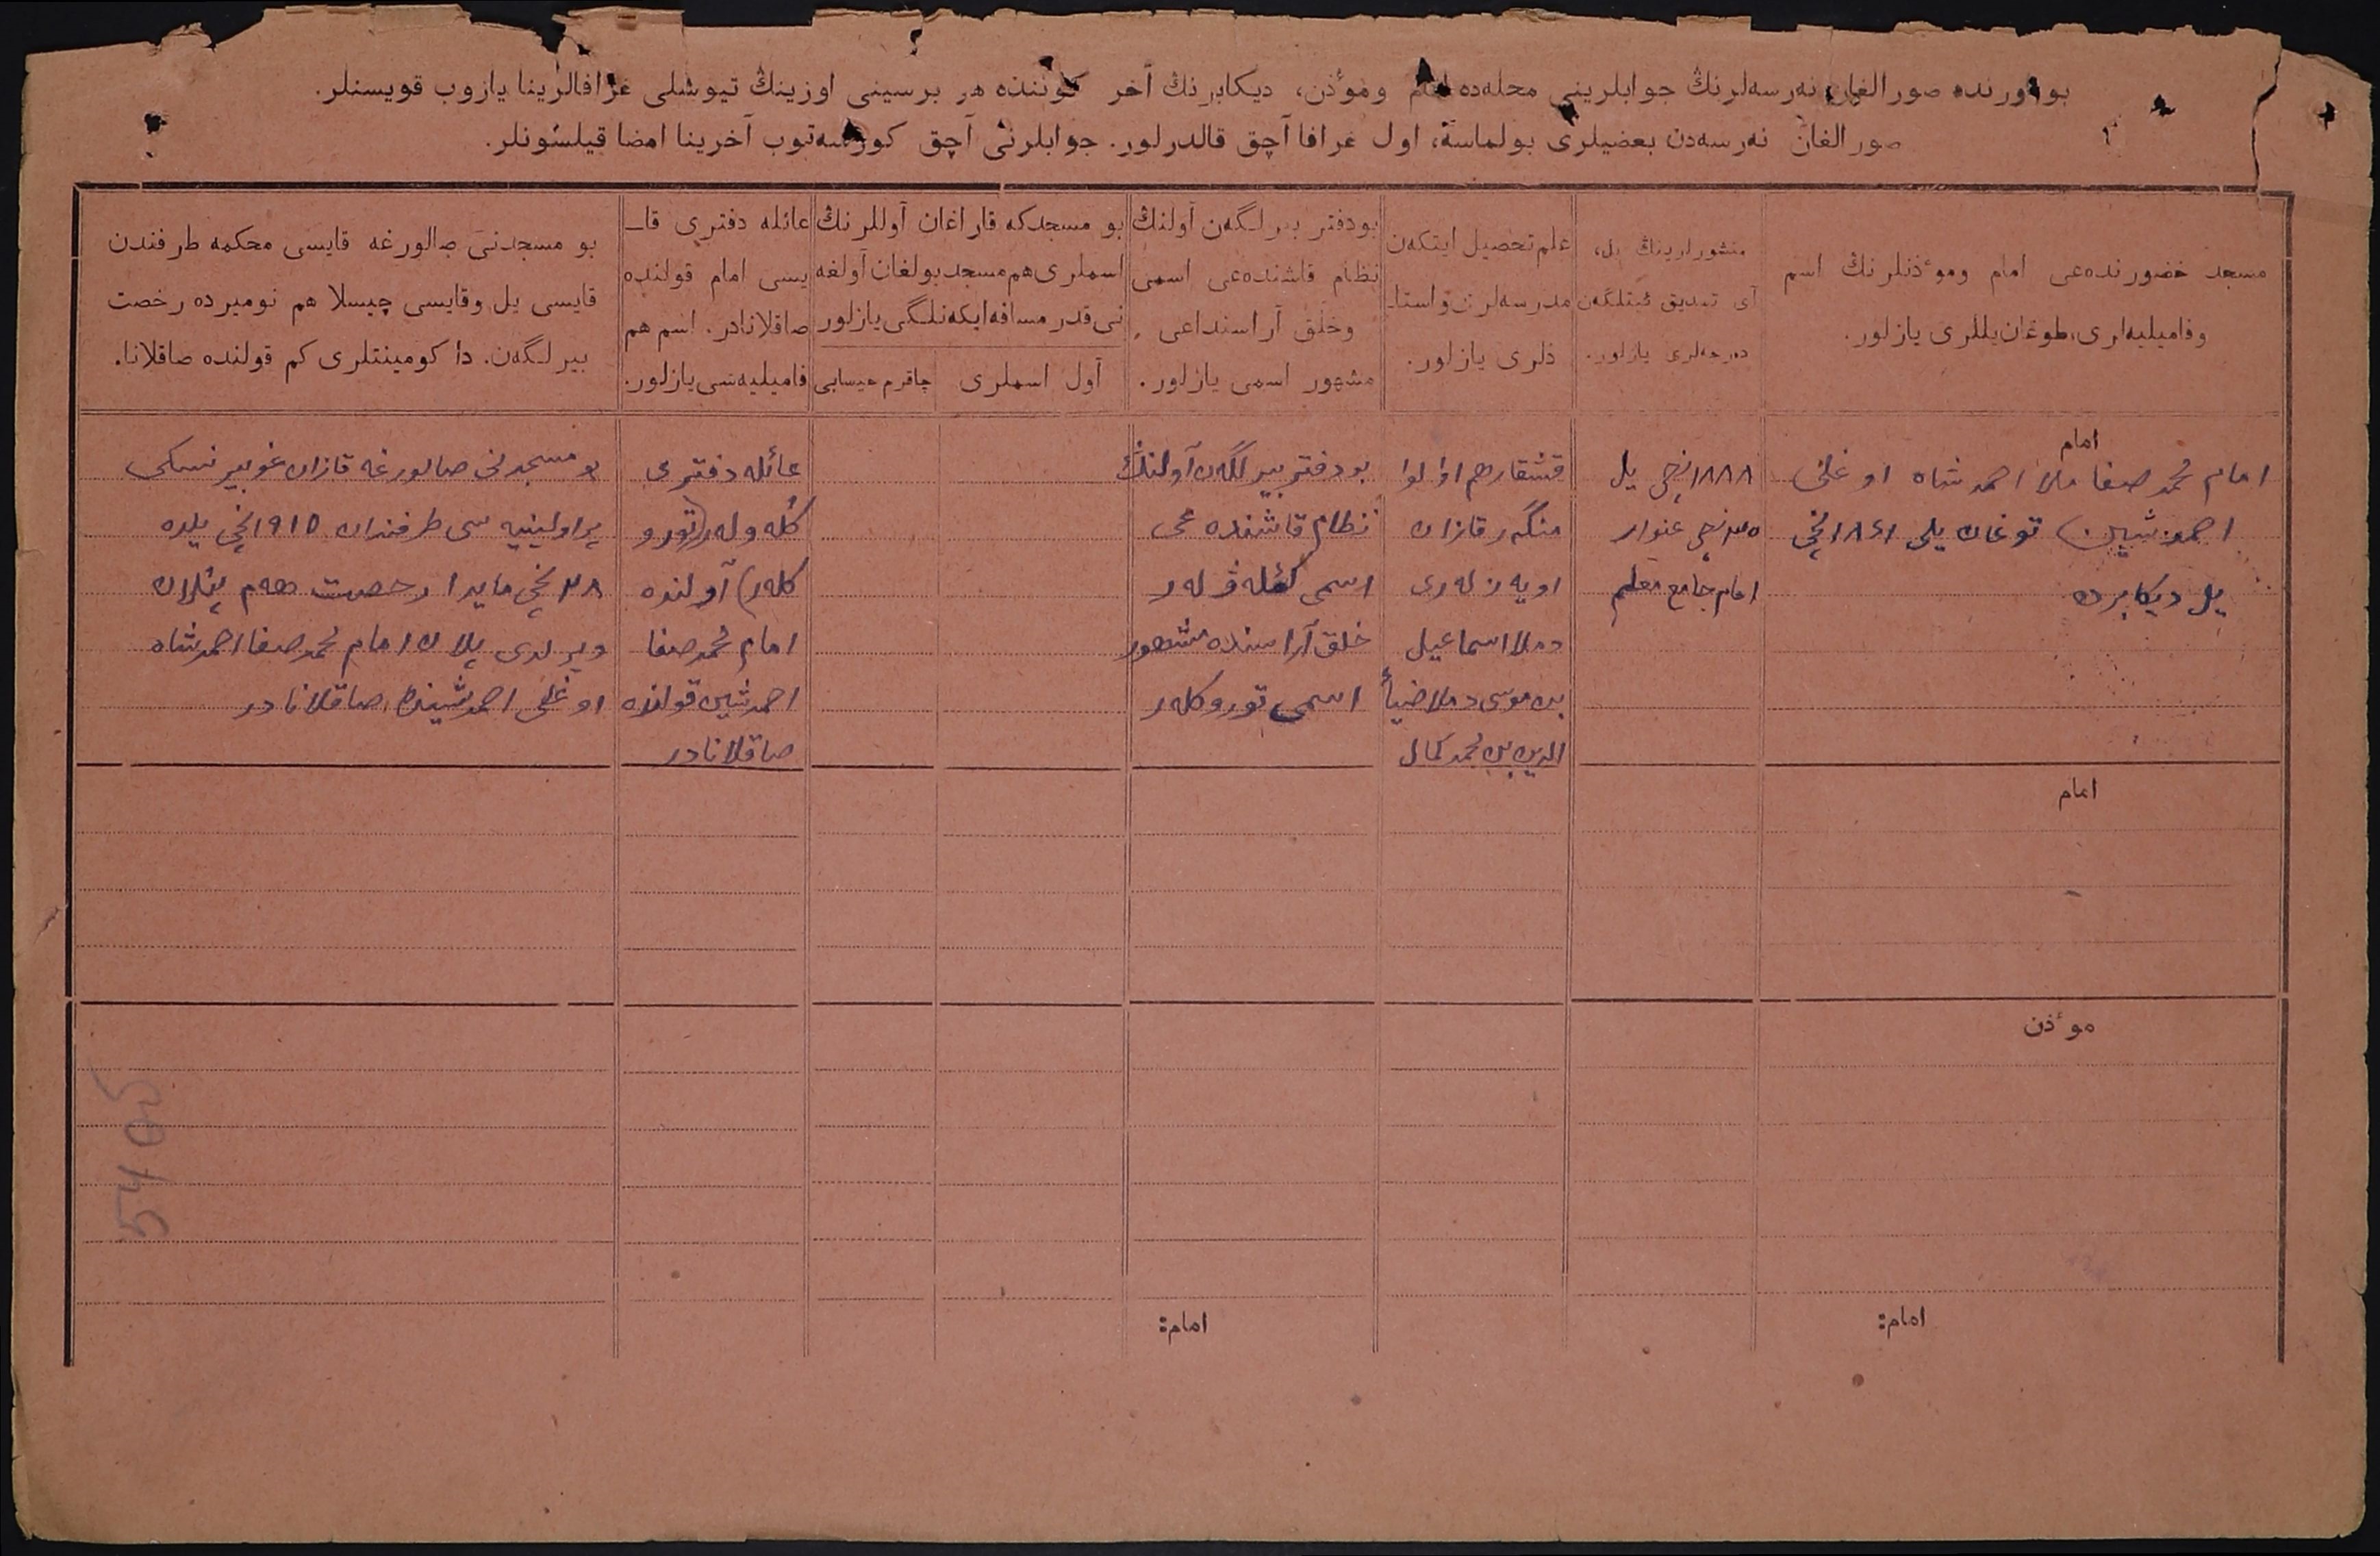 بو اورنده صورالغان نەرسەلرنڭ جوابلرینی محلەده امام ومؤذن، دیکابرنڭ آخر کوننده هر برسینی اوزینڭ تیوشلی غرافالرینا یازوب قویسنلر.
صورالغان نەرسەدن بعضیلری بولماسە، اول غرافا آچق قالدرلور. جوابلرنی آچق کورسەتوب آخرینا امضا قیلسونلر.
مسجد حضورنده‌غی امام ومؤذنلرنڭ اسم
وفامیلیەلری، طوغان یللری یازلور.
منشورلرینڭ یل،
آی تصدیق ئیتلگەن
درجەلری یازلور.
علم تحصیل ایتکەن
مدرسەلرن و استا۔
ذلری یازلور.
بو دفتر بیرلگەن آولنڭ
نظام قاشنده‌غی اسمی
وخلق آراسنداغی
مشهور اسمی یازلور.
بو مسجدکە قاراغان آوللرنڭ
اسملری هم مسجد بولغان آولغە
نی قدر مسافە ایکەنلگی یازلور
آول اسملری
چاقرم حیسابی
عائلە دفتری قا۔
یسی امام قولنده
صاقلانادر. اسم هم
فامیلیەسی یازلور.
بو مسجدنی صالورغە قایسی محکمە طرفندن
قایسی یل وقایسی چیسلا هم نومیرده رخصت
بیرلگەن. داکومینتلری کم قولنده صاقلانا.
امام
امام محمد صفا ملا احمد شاه اوغلی
احمدشین توغان یلی ١٨٤١ نچی
یل دیکابرده
١٨٨٨ نچی یل
٢٥ نچی غنوار
امام جامع معلم
قشقار هم اوا لوا
منگەر قازان
اویەزلەری
دملا اسماعیل
بن موسی دملا ضیأ
الدین بن محمد کمال
بو دفتر بیرلگەن آولنڭ
نظام قاشنده غی
اسمی کئلەڤلەر
خلق آراسنده مشهور
اسمی توروکلەر
عائلە دفتری
کلەولەر (تورو
کلەر) آولنده
امام محمد صفا
احمدشین قولنده
صاقلانادر
بو مسجدنی صالورغە قازان غوبیرنسکی
پراولینیە سی طرفندان ١٩١٥ نچی یلده
٢٨ نچی مایدا رخصت هەم پلان
ویرلدی پلان امام محمد صفا احمد شاه
اوغلی احمدشینده صاقلانادر
امام
مؤذن
امام:
امام:
5405